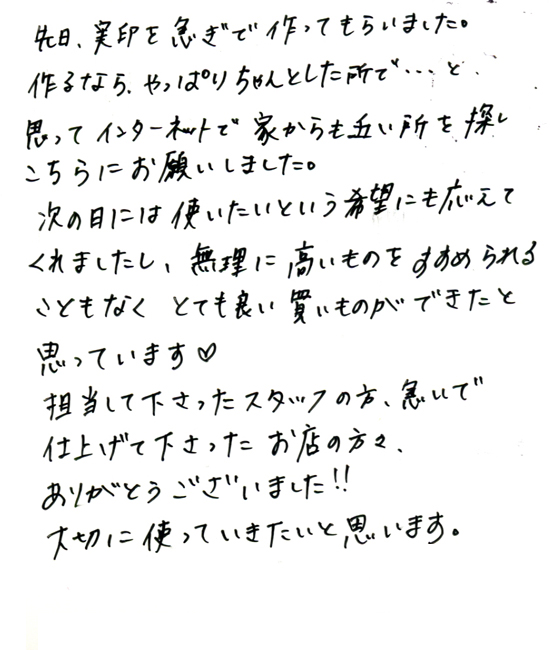 先日、実印を急ぎで作ってもらいました。
作るなら、やっぱりちゃんとした所で…と
思ってインターネットで家からも近い所を探し
こちらにお願いしました。
次の日には使いたいという希望にも応えて
くれましたし、無理に高いものをすすめられる
こともなくとても良い買いものができたと
思っています♡
担当して下さったスタッフの方、急いで
仕上げて下さったお店の方々、
ありがとうございました!!
大切に使っていきたいと思います。